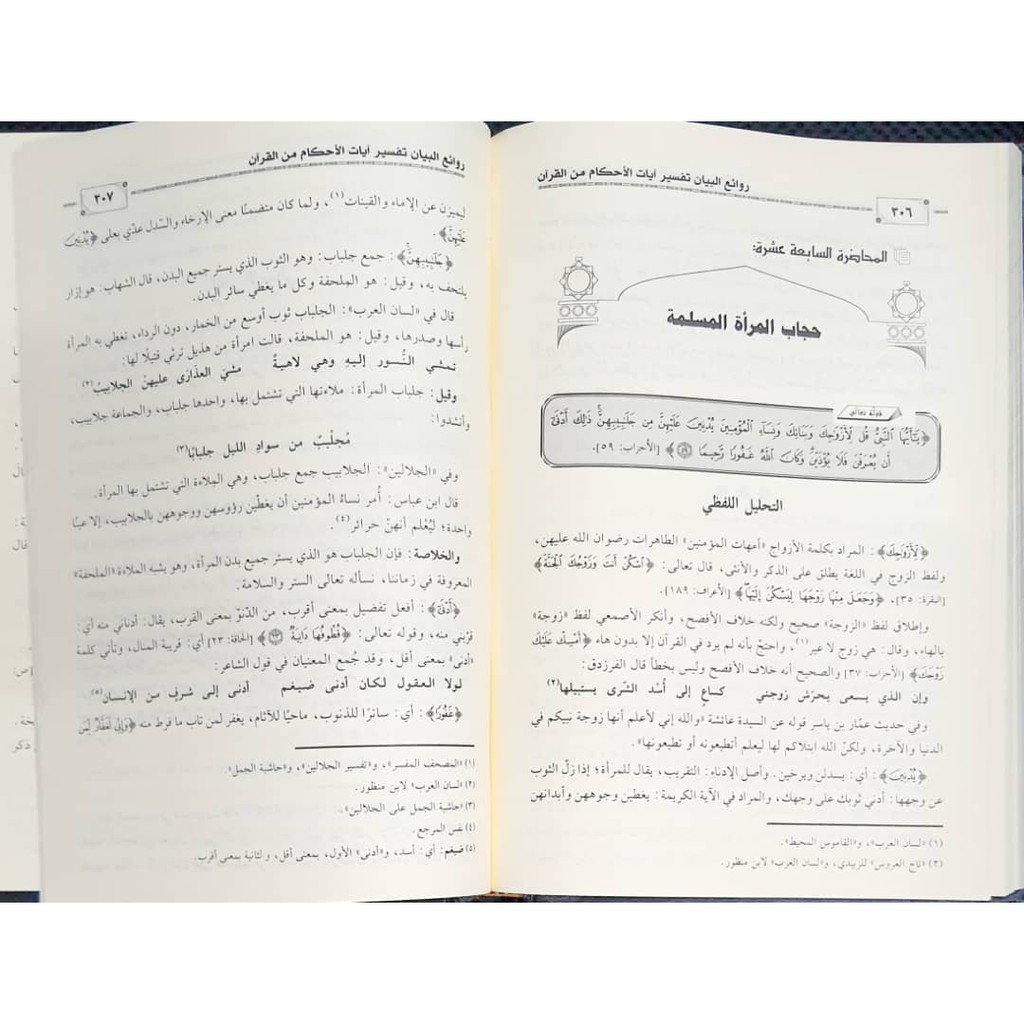 روائع البيان تفسير آيات الأحكام من القرآن
٣٠٦
المحاضرة السابعة عشرة:
حجاب المرأة المسلمة
قوله تعالى
﴿يَٰٓأَيُّهَا ٱلنَّبِىُّ قُل لِّأَزْوَٰجِكَ وَبَنَاتِكَ وَنِسَآءِ ٱلْمُؤْمِنِينَ يُدْنِينَ عَلَيْهِنَّ مِن جَلَٰبِيبِهِنَّ ذَٰلِكَ أَدْنَىٰٓ
أَن يُعْرَفْنَ فَلَا يُؤْذَيْنَ وَكَانَ ٱللَّهُ غَفُورًا رَّحِيمًا﴾ [الأحزاب: ٥٩].
التحليل اللفظي
﴿لِّأَزْوَٰجِكَ﴾: المراد بكلمة الأزواج «أمهات المؤمنين» الطاهرات رضوان الله عليهن،
ولفظ الزوج في اللغة يطلق على الذكر والأنثى، قال تعالى: ﴿ٱسْكُنْ أَنتَ وَزَوْجُكَ ٱلْجَنَّةَ﴾
[البقرة: ٣٥]، ﴿وَجَعَلَ مِنْهَا زَوْجَهَا لِيَسْكُنَ إِلَيْهَا﴾ [الأعراف: ١٨٩].
وإطلاق لفظ «الزوجة» صحيح ولكنه خلاف الأفصح، وأنكر الأصمعي لفظ «زوجة»
بالهاء، وقال: هي زوج لا غير(١)، واحتجّ بأنه لم يرد في القرآن إلا بدون هاء ﴿أَمْسِكْ عَلَيْكَ
زَوْجَكَ﴾ [الأحزاب: ٣٧] والصحيح أنه خلاف الأفصح وليس بخطأ قال الفرزدق:
وإن الذي يسعى يحرّش زوجتي كساعٍ إلى أُسْد الشّرى يستبيلها(٢)
وفي حديث عمّار بن ياسر قوله عن السيدة عائشة «والله إني لأعلم أنها زوجة نبيكم في
الدنيا والآخرة، ولكنّ الله ابتلاكم لها ليعلم أتطيعونه أو تطيعونها».
﴿يُدْنِينَ﴾: أي: يسدلن ويرخين. وأصل الإدناء: التقريب، يقال للمرأة؛ إذا زلّ الثوب
عن وجهها: أدني ثوبك على وجهك، والمراد في الآية الكريمة: يغطين وجوههن وأبدانهن
(١) «لسان العرب»، و«القاموس المحيط».
(٢) «تاج العروس» للزبيدي، و«لسان العرب» لابن منظور.
روائع البيان تفسير آيات الأحكام من القرآن
٣٠٧
ليميزن عن الإماء والقينات(١)، ولما كان متضمنًا معنى الإرخاء والسّدل عدّي بعلى ﴿يُدْنِينَ
عَلَيْهِنَّ﴾.
﴿جَلَٰبِيبِهِنَّ﴾: جمع جلباب: وهو الثوب الذي يستر جميع البدن، قال الشهاب: هو إزار
يلتحف به، وقيل: هو الملحفة وكل ما يغطي سائر البدن.
قال في «لسان العرب»: الجلباب ثوب أوسع من الخمار، دون الرداء، تغطي به المرأة
رأسها وصدرها، وقيل: هو الملحفة، قالت امرأة من هذيل ترثي قتيلًا لها:
تمشي النُّسور إليهِ وهي لاهيةٌ مشيَ العذَارَى عليهنّ الجلابيبُ(٢)
وقيل: جلباب المرأة: ملاءتها التي تشتمل بها، واحدها جلباب، والجماعة جلابيب،
وأنشدوا:
مُجلْببٌ من سوادِ الليل جلبابًا(٣)
وفي «الجلالين»: الجلابيب جمع جلباب، وهي الملاءة التي تشتمل بها المرأة.
قال ابن عباس: أُمر نساءُ المؤمنين أن يغطّين رؤوسهن ووجوههن بالجلابيب، إلا عينًا
واحدة؛ ليُعْلم أنهنّ حرائر(٤).
والخلاصة: فإن الجلباب هو الذي يستر جميع بدن المرأة، وهو يشبه الملاءة «الملحفة»
المعروفة في زماننا، نسأله تعالى الستر والسلامة.
﴿أَدْنَىٰٓ﴾: أفعل تفضيل بمعنى أقرب، من الدّنوّ بمعنى القرب، يقال: أدناني منه أي:
قرّبني منه، وقوله تعالى: ﴿قُطُوفُهَا دَانِيَةٌ﴾ [الحاقة: ٢٣] أي: قريبة المنال، وتأتي كلمة
«أدنى» بمعنى أقل، وقد جُمع المعنيان في قول الشاعر:
لولا العقول لكان أدنى ضيغم أدنى إلى شرفٍ من الإنسان(٥)
﴿غَفُورًا﴾: أي: ساترًا للذنوب، ماحيًا للآثام، يغفر لمن تاب ما فرط منه ﴿وَإِنِّى لَغَفَّارٌ لِّمَن
(١) «المصحف المفسر»، و«تفسير الجلالين»، و«حاشية الجمل».
(٢) «لسان العرب» لابن منظور.
(٣) «حاشية الجمل على الجلالين».
(٤) نفس المرجع.
(٥) ضيغم: أي: أسد، و«أدنى» الأول، بمعنى أقل، والثانية بمعنى أقرب.